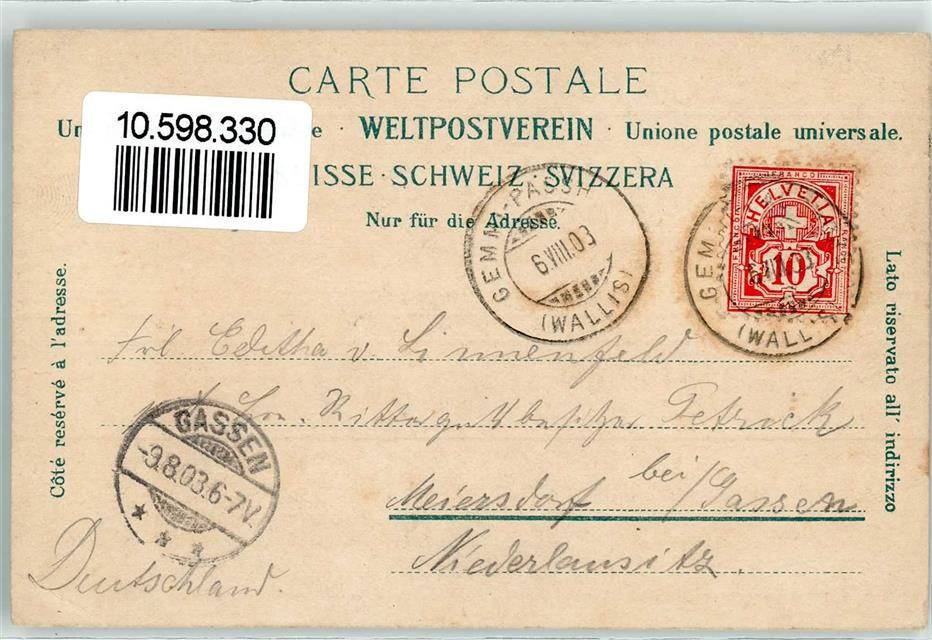 CARTE POSTALE
10.598.330
Un e · WELTPOSTVEREIN · Unione postale universale.
ISSE · SCHWEIZ · SVIZZERA
Nur für die Adresse.
GEMMI-PASSH
6.VIII.03
(WALLIS)
FRANCO
HELVETIA
FRANCO
FRANCO
10
GEM
VIII.03
(WALLIS)
Côté resérvé à l'adresse.
Lato riservato all' indirizzo
Frl. Editha v. Linnenfeld
Rittergutsbesitzer Petrick
Meiersdorf bei/Gassen
Niederlausitz.
Deutschland.
GASSEN
-9.8.03.6-7V.